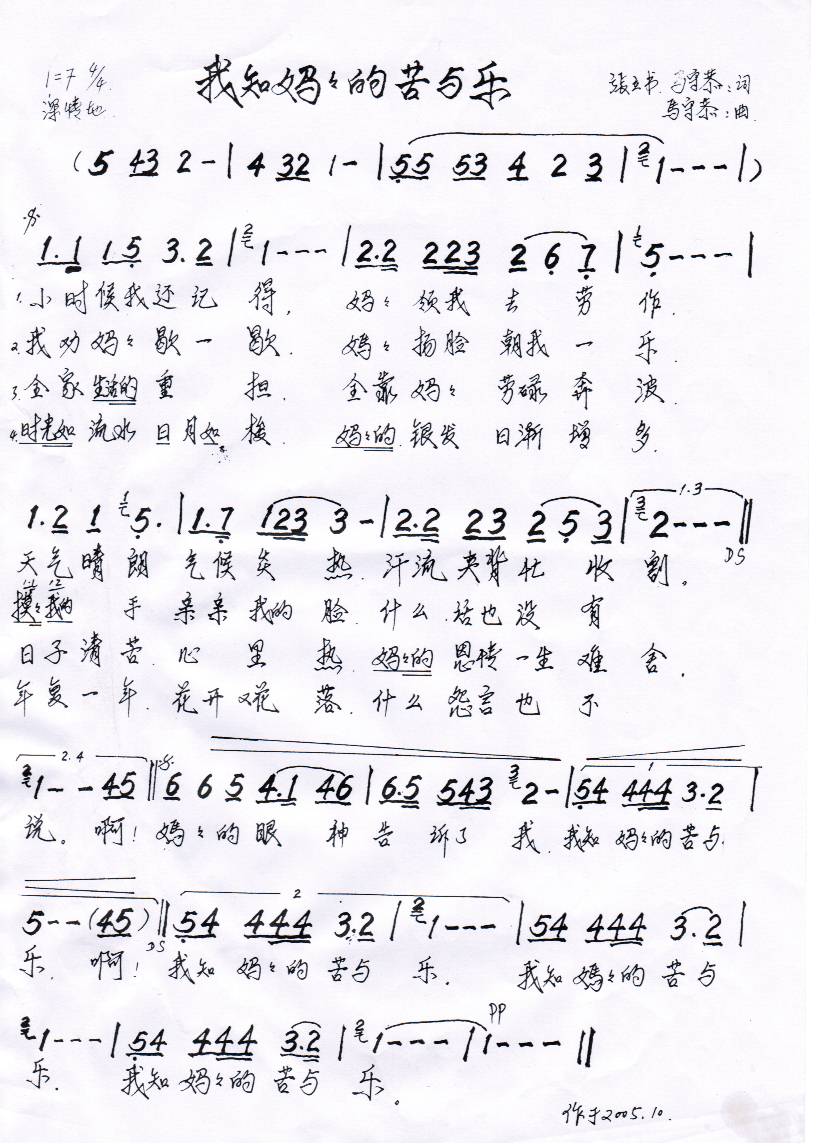 我知妈々的苦与乐
1=7 4/4
深情地
張立书、马守恭:词
馬守恭:曲
(5 43 2 - | 4 32 1 - | 55 53 4 2 3 | 1 - - - |)
1.1 15 3.2 | 1 - - - | 2.2 223 2 6 7 | 5 - - - |
1.小时候我还记得, 妈々领我去劳作.
2.我劝妈々歇一歇. 媽々扬脸朝我一乐.
3.全家生活的重担. 全靠妈々劳碌奔波.
4.时光如流水日月如梭. 妈々的银发日渐增多.
1.2 1 5. | 1.7 123 3 - | 2.2 23 2 5 3 | 2 - - - ||
1.3
DS
天气晴朗气候炎热.汗流夹背忙收割.
摸々我的手亲亲我的脸.什么话也没有
日子清苦.心里热.妈々的恩情一生难舍.
年复一年.花开又花落.什么怨言也不
2.4
1 - - 45 || 6 6 5 4.1 46 | 6.5 543 2 - | 54 444 3.2 |
说。啊!媽々的眼神告诉了我.我知妈々的苦与
5 - - (45) || 54 444 3.2 | 1 - - - | 54 444 3.2 |
DS
乐.啊!我知妈々的苦与乐. 我知媽々的苦与
PP
1 - - - | 54 444 3.2 | 1 - - - | 1 - - - ||
乐. 我知妈々的苦与乐。
作于2005.10.